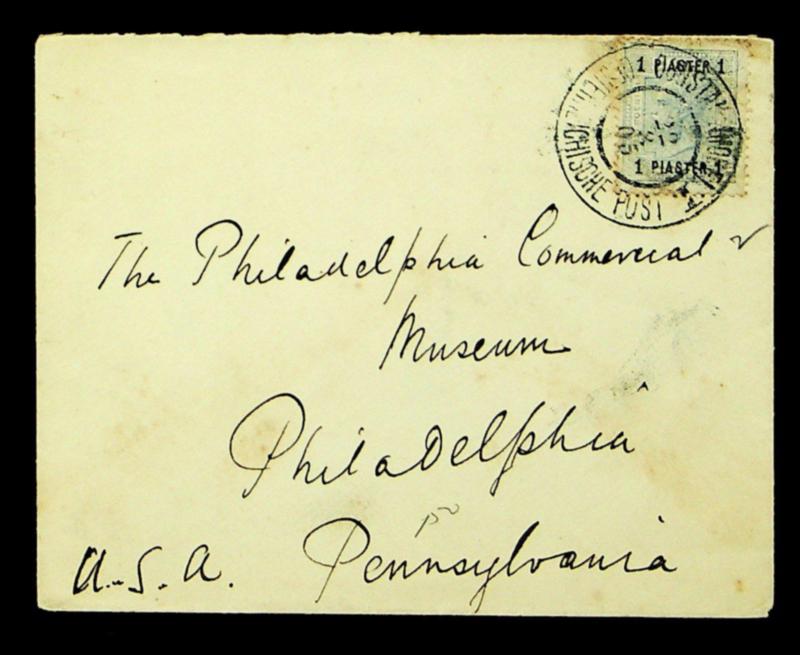 1 PIASTER 1
1 PIASTER 1
ÖSTERREICHISCHE POST
05
The Philadelphia Commercial
Museum
Philadelphia
U.S.A. Pennsylvania